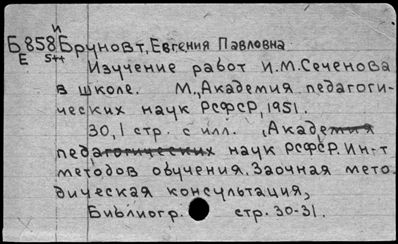 и
Б 858 Бруновт, Евгения Павловна
Е 544
Изучение работ И.М.Сеченова
в школе. М., Академия педагоги-
ческих наук РСФСР, 1951.
30,1 стр. с илл. (Академия
педагогических наук РСФСР. Ин-т
методов обучения. Заочная мето-
дическая консультация,
Библиогр. стр. 30-31.